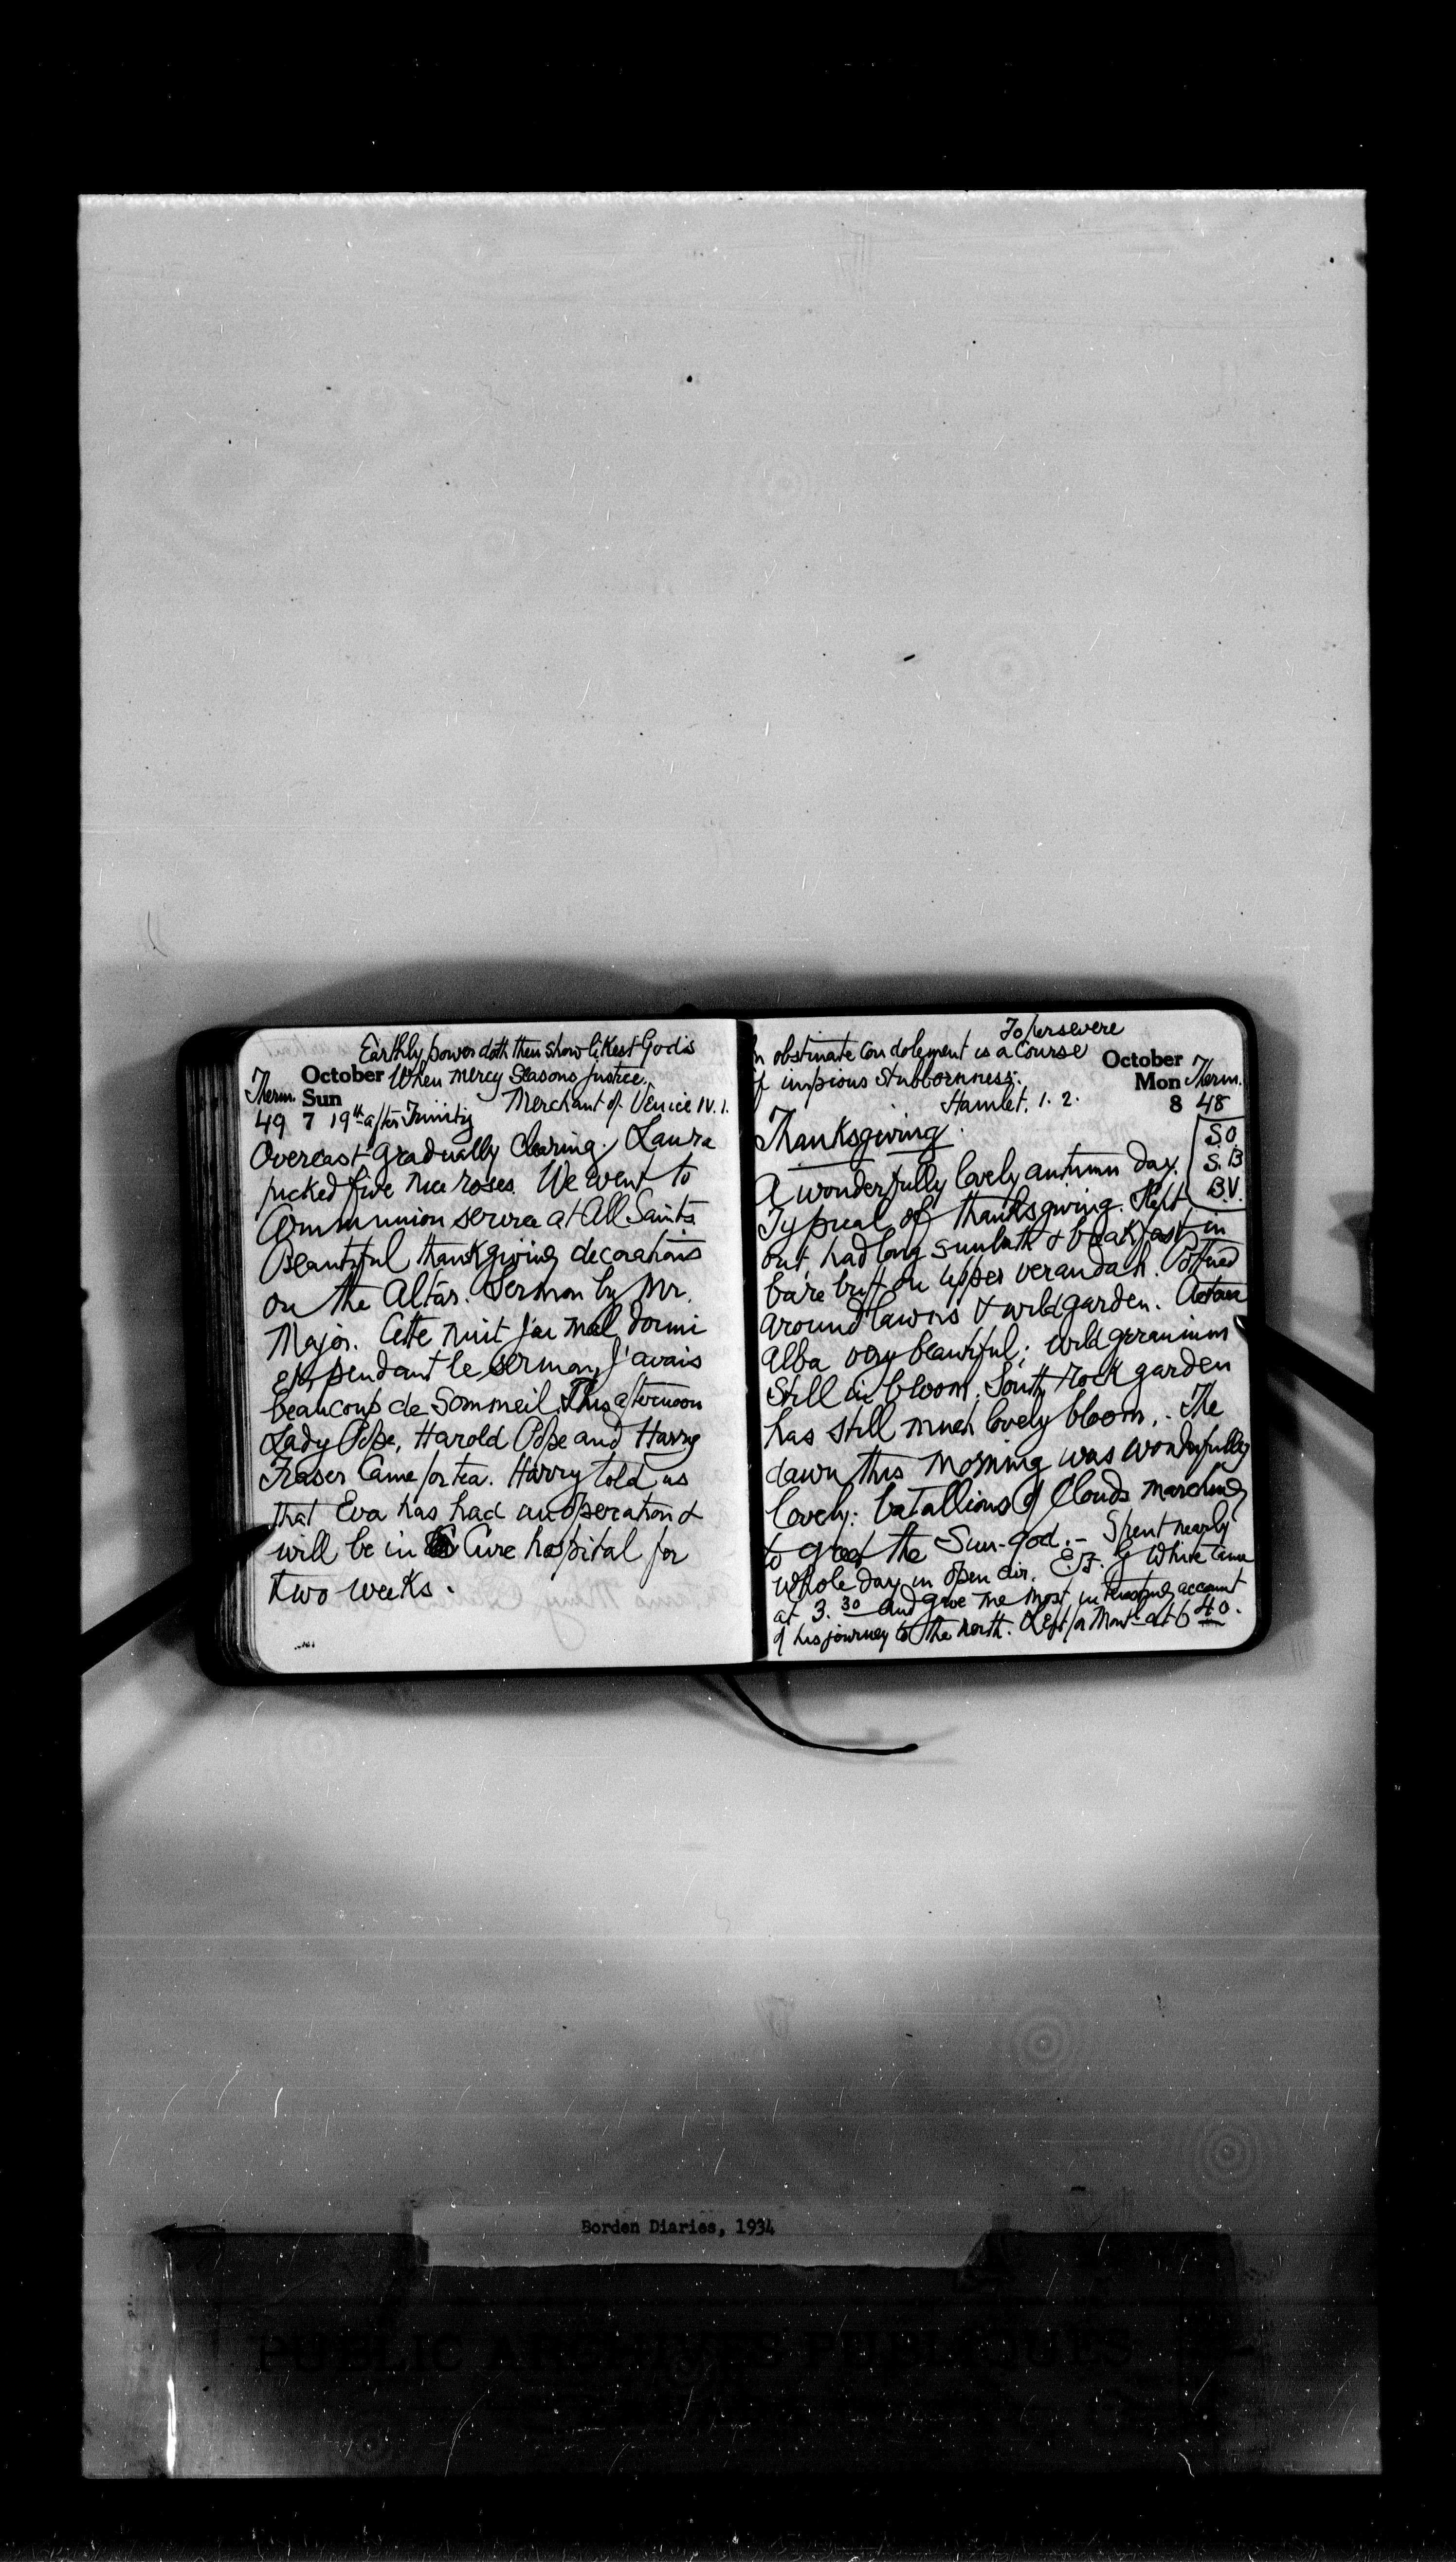 Earthly power doth then show likest God's
October When mercy seasons justice.
Therm. Sun Merchant of Venice IV. 1.
49 7 19th after Trinity
Overcast gradually clearing. Laura
picked five nice roses. We went to
Communion service at All Saints
Beautiful thanksgiving decorations
on the Altar. Sermon by Mr.
Major. Cette nuit j'ai mal dormi
et pendant le sermon j'avais
beaucoup de Sommeil. This afternoon
Lady Pope, Harold Pope and Harry
Fraser Came for tea. Harry told us
that Eva has had an operation &
will be in Cure hospital for
two weeks.
To persevere
In obstinate condolement is a Course
Of impious Stubbornness:
Hamlet. 1. 2.
October
Mon Therm.
8 48
S.O.
S.B
B.V.
Thanksgiving.
A wonderfully lovely autumn day.
Typical of thanksgiving. Slept
out, had long sunbath & breakfast in
bare buff on upper verandah.
around lawns & wild garden. Actaea
alba very beautiful; wild geranium
Still in bloom. South rock garden
has still much lovely bloom. - The
dawn this morning was wonderfully
lovely: batallions of Clouds marching
to greet the Sun-god. - Spent nearly
whole day in open air. G White came
at 3.30 and gave me most interesting account
of his journey to the north. Left for Mont- at 6 40.
Borden Diaries, 1934
PUBLIC ARCHIVES PUBLIQUES